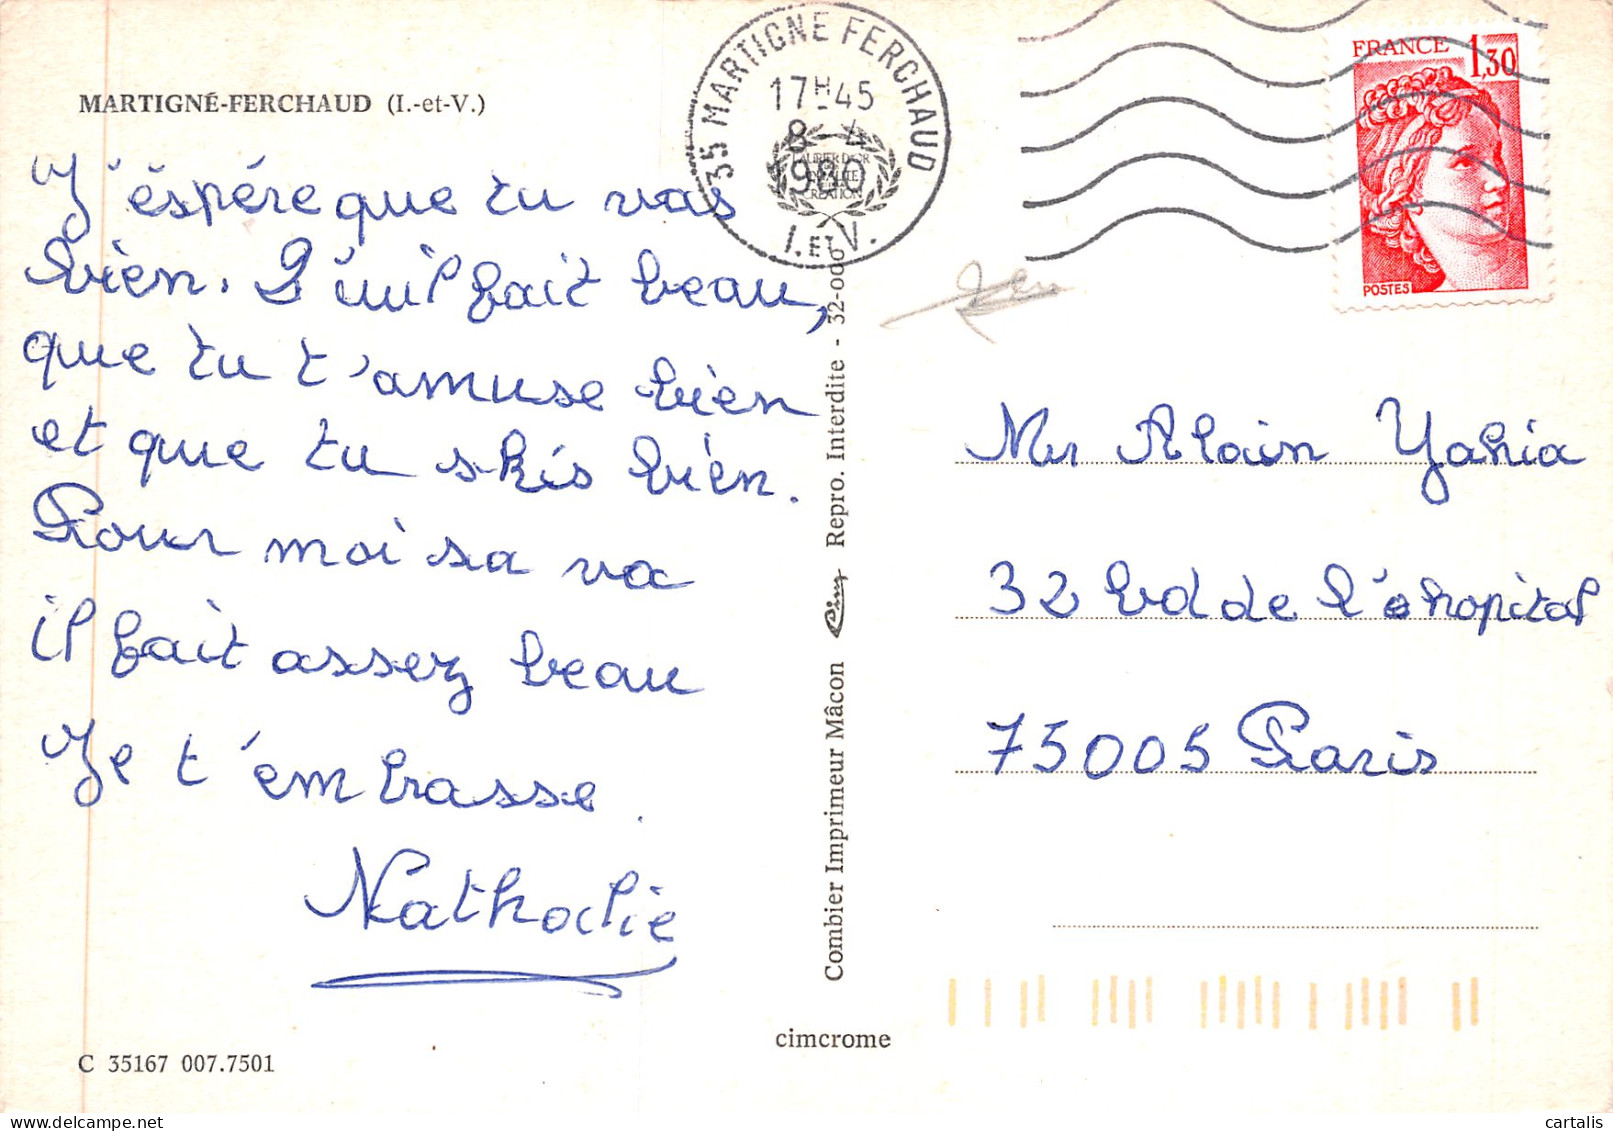 MARTIGNÉ-FERCHAUD (I.-et-V.)
J'éspére que tu vas
bien. Qu'il fait beau,
que tu t'amuse bien
et que tu skis bien.
Pour moi sa va
il fait assez beau
Je t'embrasse.
Nathalie
C 35167 007.7501
cimcrome
Combier Imprimeur Mâcon Cim Repro. Interdite - 32-000
35 MARTIGNE FERCHAUD
17H45
8 - 4
1980
I. ET V.
LAURIER D'OR
QUALITE
CREATION
FRANCE 1,30
POSTES
Mr Alain Yahia
32 bd de l'hopital
75005 Paris
cartalis